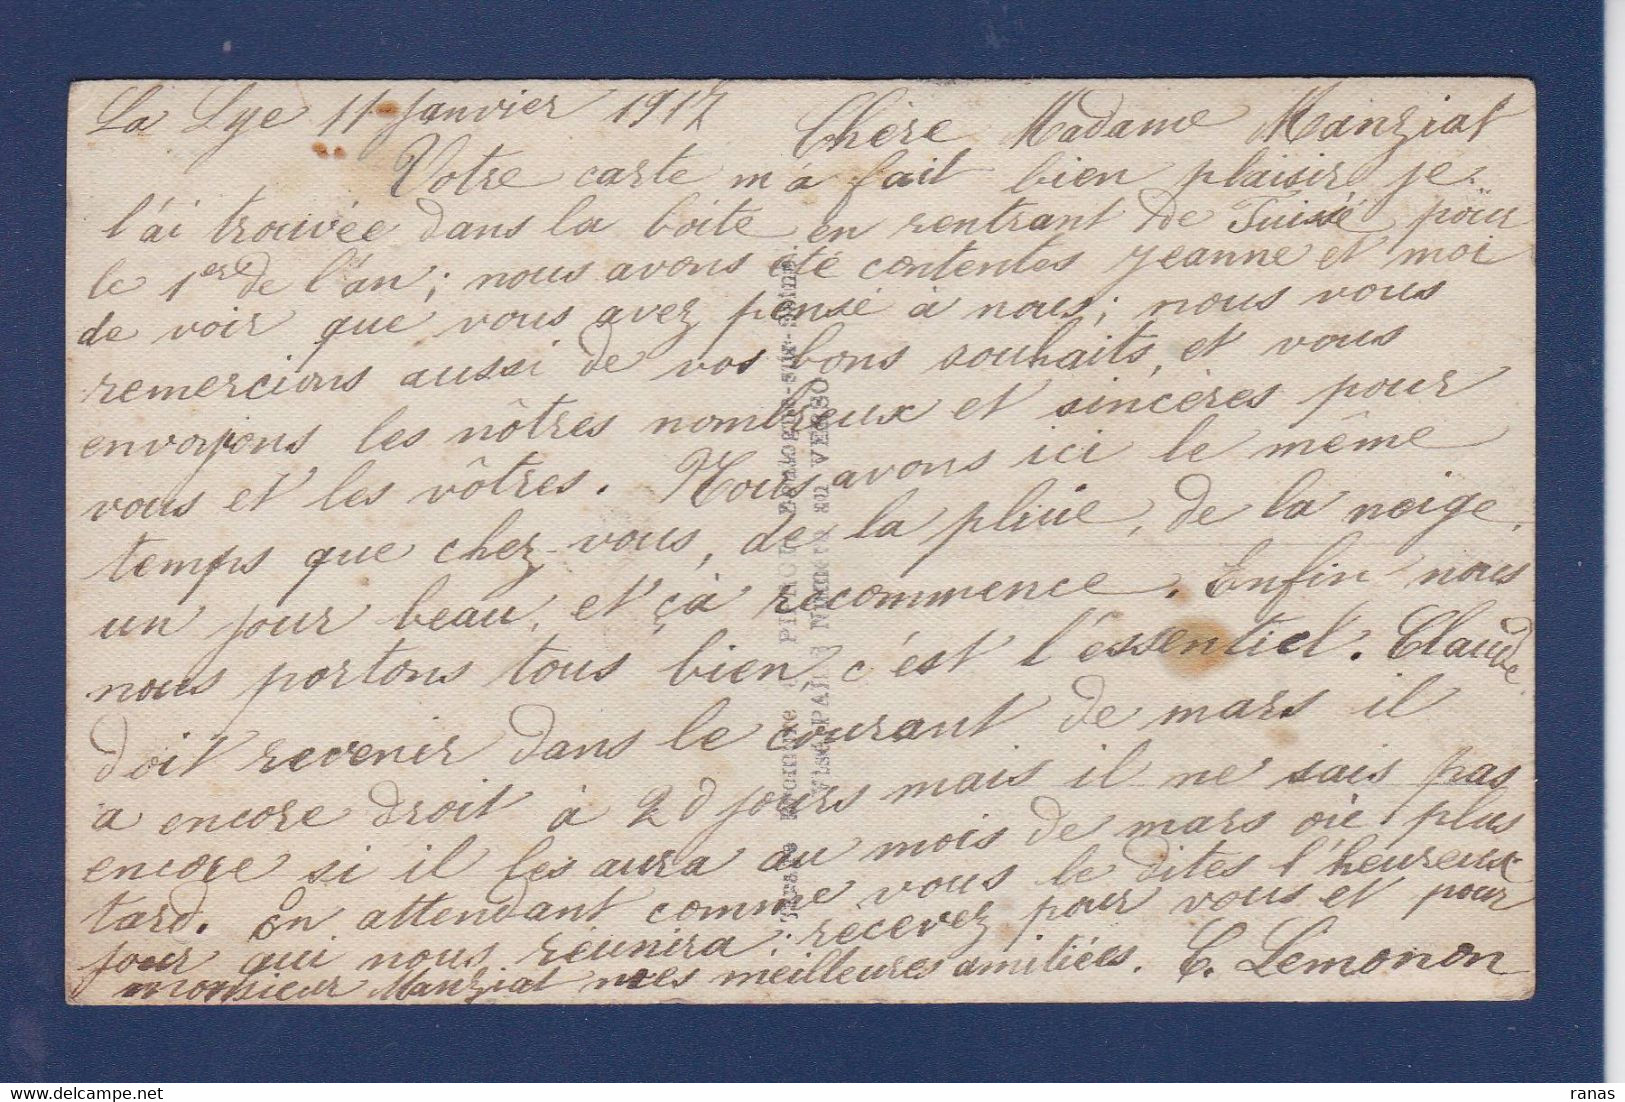 La Lye 11 Janvier 1917 Chère Madame Manziat
Votre carte m'a fait bien plaisir je
l'ai trouvée dans la boite en rentrant de Suisse pour
le 1ere de l'an; nous avons été contentes Jeanne et moi
de voir que vous avez pensé à nous; nous vous
remercions aussi de vos bons souhaits, et vous
envoyons les nôtres nombreux et sincères pour
vous et les vôtres. Nous avons ici le même
temps que chez-vous, de la pluie, de la neige,
un jour beau, et çà recommence. Enfin nous
nous portons tous bien c'est l'éssentiel. Claude
doit revenir dans le courant de mars il
a encore droit à 20 jours mais il ne sais pas
encore si il les aura au mois de mars où plus
tard. En attendant comme vous le dites l'heureux
jour qui nous réunira; recevez pour vous et pour
monsieur Manziat mes meilleures amitiées. C. Lemonon
PARIS Numéro au VERSO
ranas